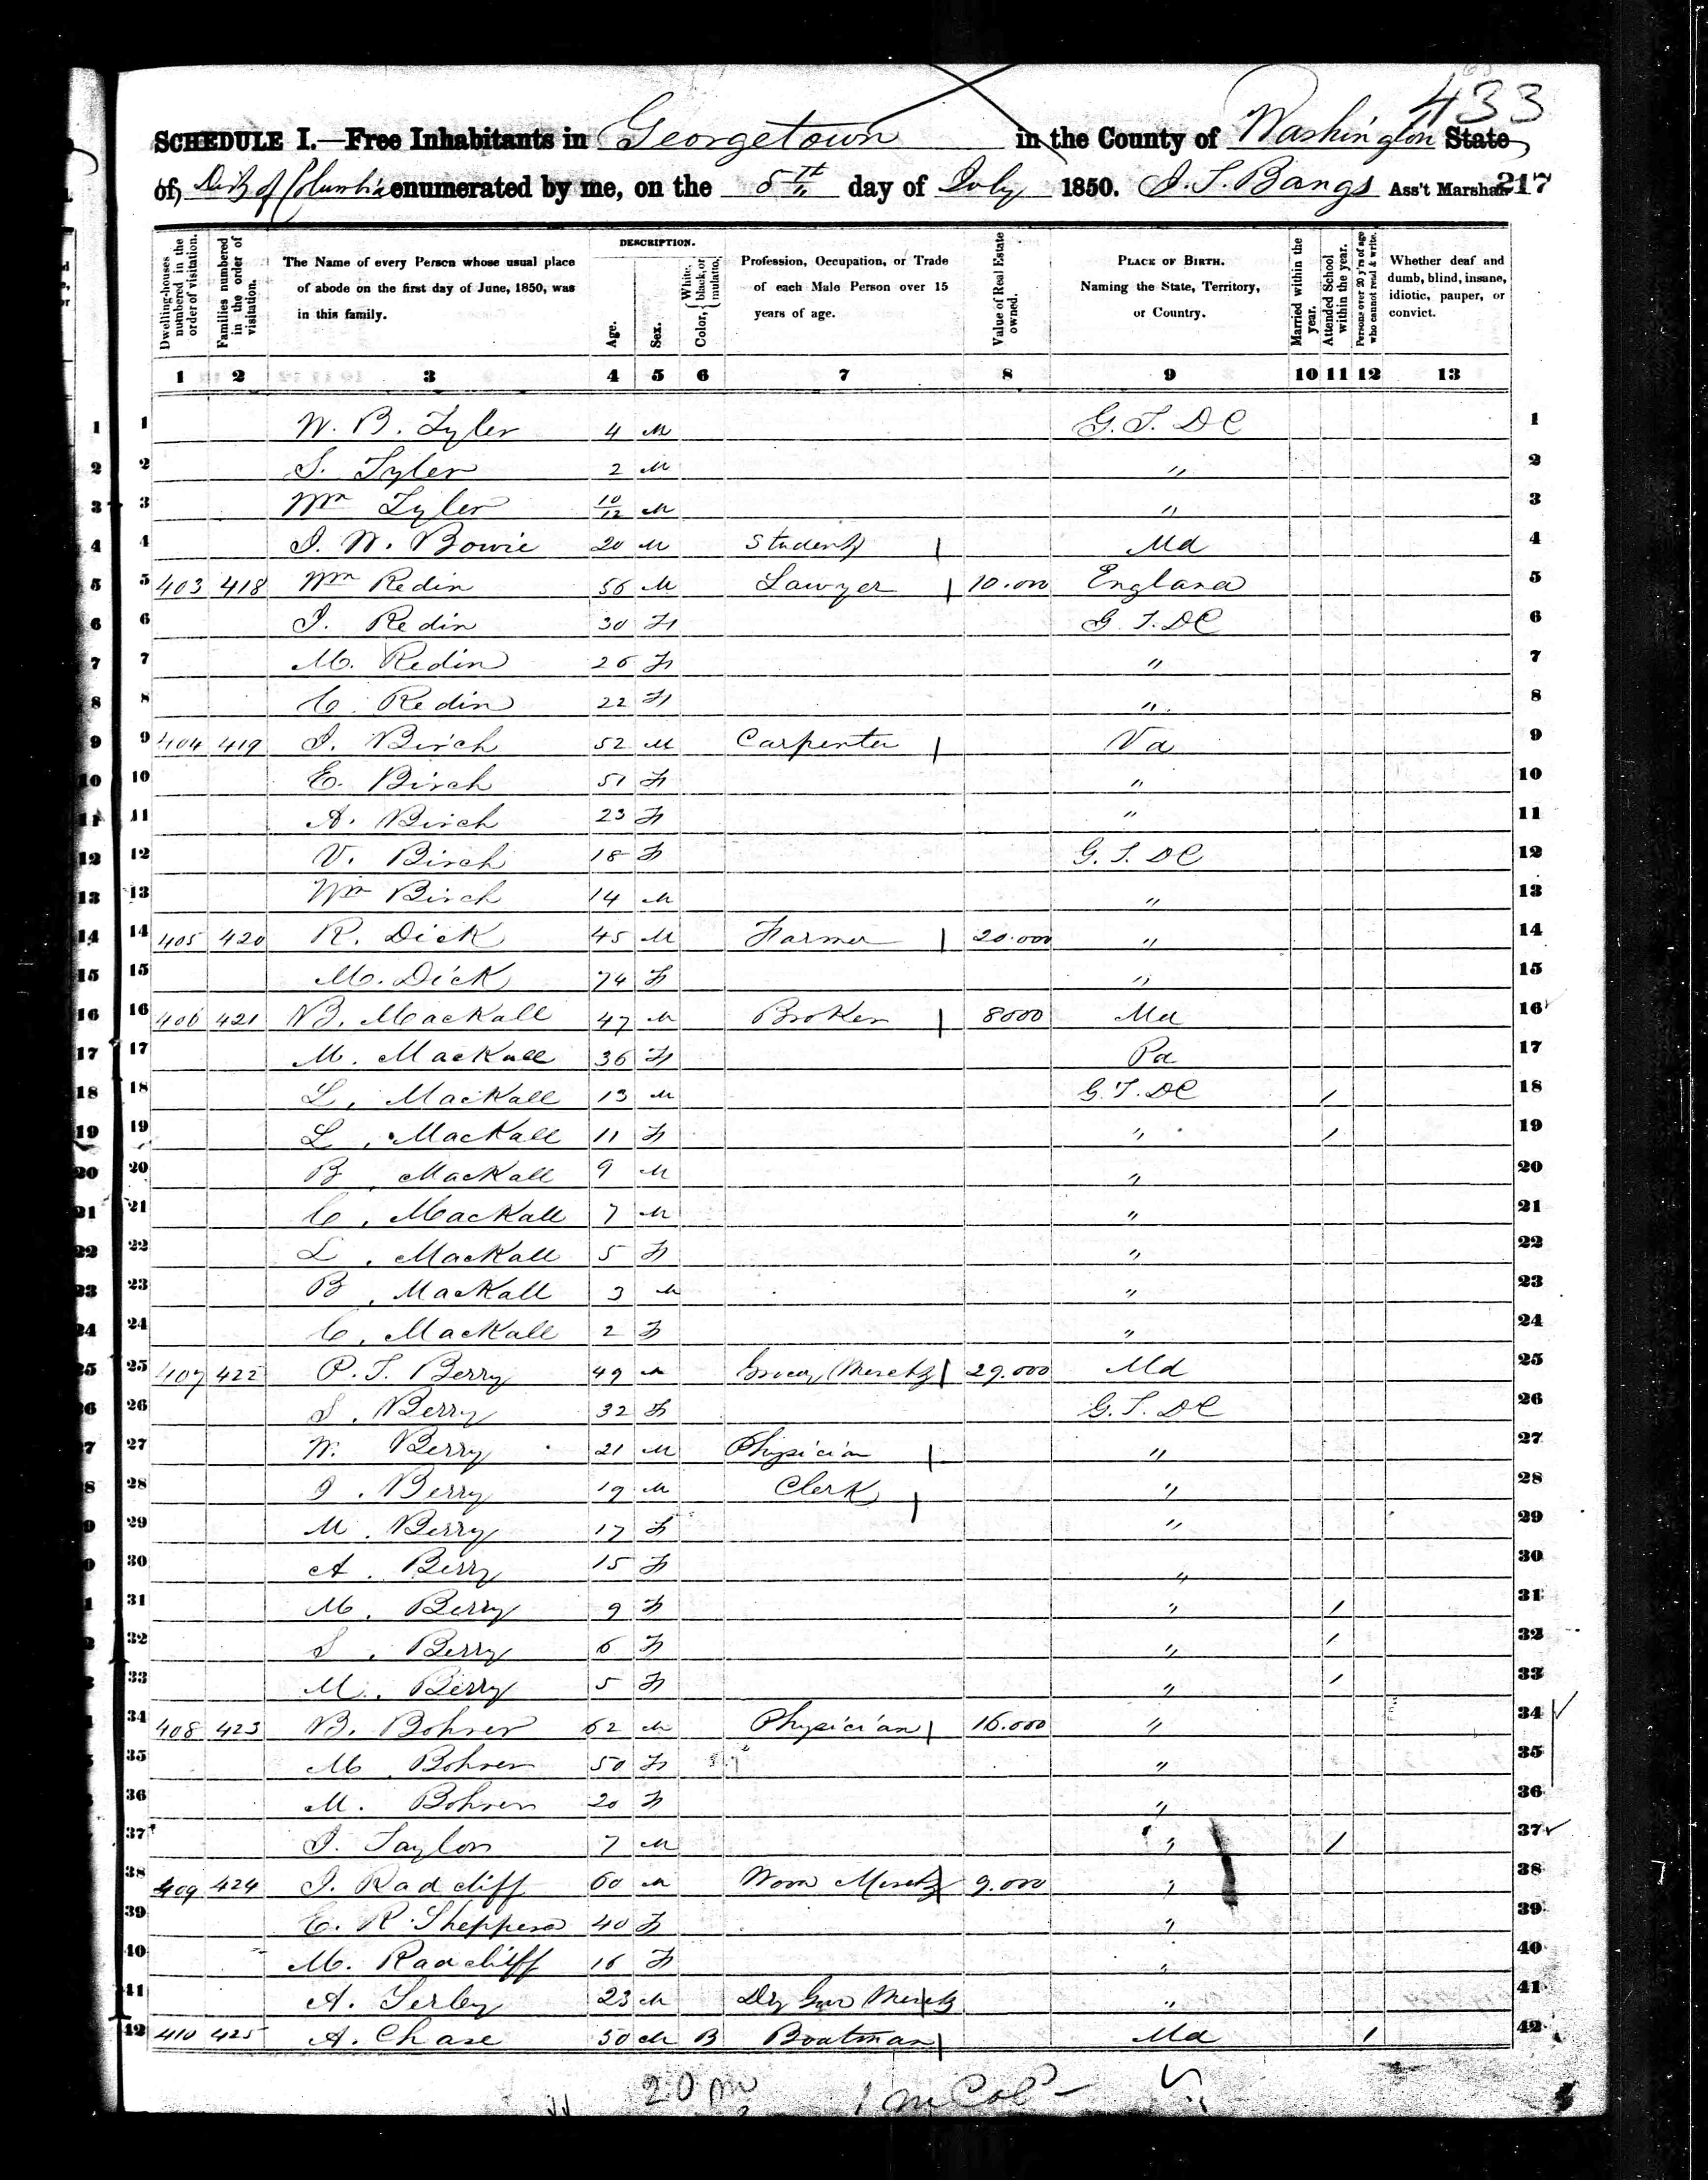 433
SCHEDULE I.—Free Inhabitants in Georgetown in the County of Washington State
of Dist of Columbia enumerated by me, on the 5th day of July 1850. J. T. Bangs Ass't Marshal. 217
Dwelling-houses numbered in the order of visitation.
Families numbered in the order of visitation.
The Name of every Person whose usual place of abode on the first day of June, 1850, was in this family.
DESCRIPTION.
Age.
Sex.
Color, White, black, or mulatto.
Profession, Occupation, or Trade of each Male Person over 15 years of age.
Value of Real Estate owned.
PLACE OF BIRTH. Naming the State, Territory, or Country.
Married within the year.
Attended School within the year.
Persons over 20 y'rs of age who cannot read & write.
Whether deaf and dumb, blind, insane, idiotic, pauper, or convict.
1 2 3 4 5 6 7 8 9 10 11 12 13
1 1 W. B. Tyler 4 M G. T. DC 1
2 2 S. Tyler 2 M " 2
3 3 Wm Tyler 10/12 M " 3
4 4 J. W. Bowie 20 M Student | Md 4
5 5 403 418 Wm Redin 56 M Lawyer | 10.000 England 5
6 6 J. Redin 30 F G. T. DC 6
7 7 M. Redin 26 F " 7
8 8 C. Redin 22 F " 8
9 9 404 419 J. Birch 52 M Carpenter | Va 9
10 10 E. Birch 51 F " 10
11 11 A. Birch 23 F " 11
12 12 V. Birch 18 F G. T. DC 12
13 13 Wm Birch 14 M " 13
14 14 405 420 R. Dick 45 M Farmer | 20.000 " 14
15 15 M. Dick 74 F " 15
16 16 406 421 B. MacKall 47 M Broker | 8000 Md 16
17 17 M. MacKall 36 F Pa 17
18 18 L. MacKall 13 M G. T. DC / 18
19 19 L. MacKall 11 F " / 19
20 20 B. MacKall 9 M " 20
21 21 C. MacKall 7 M " 21
22 22 L. MacKall 5 F " 22
23 23 B. MacKall 3 M " 23
24 24 C. MacKall 2 F " 24
25 25 407 422 P. T. Berry 49 M Grocery Mercht | 29.000 Md 25
26 26 S. Berry 32 F G. T. DC 26
27 27 W. Berry 21 M Physician | " 27
28 28 J. Berry 19 M Clerk | " 28
29 29 M. Berry 17 F " 29
30 30 A. Berry 15 F " 30
31 31 M. Berry 9 F " / 31
32 32 S. Berry 6 F " / 32
33 33 M. Berry 5 F " / 33
34 408 423 B. Bohrer 62 M Physician | 16.000 " 34
35 M. Bohrer 50 F " 35
36 M. Bohrer 20 F " 36
37 J. Taylor 7 M " / 37
38 409 424 J. Radcliff 60 M Mercht 9.000 " 38
39 E. R. Shepperd 40 F " 39
40 M. Radcliff 16 F " 40
41 A. 23 M Dry Goo Mercht " 41
42 410 425 A. Chase 50 M B Boatman | Md / 42
20 m 1 m Cold